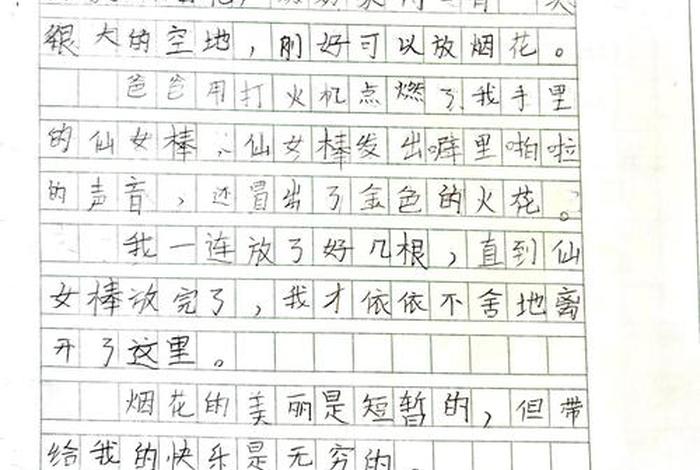 很大的空地，刚好可以放烟花。
爸爸用打火机点燃了我手里
的仙女棒，仙女棒发出噼里啪啦
的声音，还冒出了金色的火花。
我一连放了好几根，直到仙
女棒放完了，我才依依不舍地离
开了这里。
烟花的美丽是短暂的，但带
给我的快乐是无穷的。